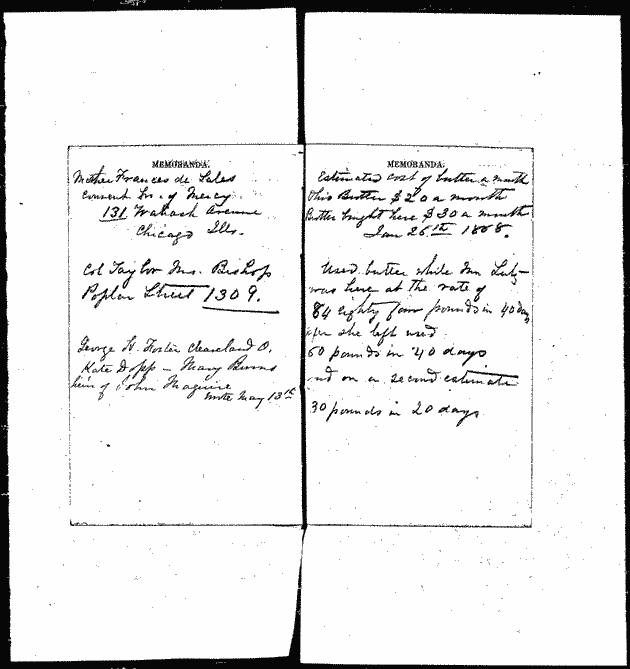 MEMORANDA.
Mother Frances de Sales
Convent Srs. of Mercy
131 Wabash Avenue
Chicago Ills.
Col Taylor Mrs. Bishop
Poplar Street 1309.
George H. Foster Cleaveland O.
Kate Dopp - Mary Burns
heir of John Maguire
wrote May 13th
MEMORANDA.
Estimated cost of butter a month
Ohio Butter $20 a month
Butter bought here $30 a month
Jan 26th 1868.
Used butter while Mrs
was here at the rate of
84 eighty four pounds in 40 day
after she left used
60 pounds in 40 days
and on a second estimate
30 pounds in 20 days